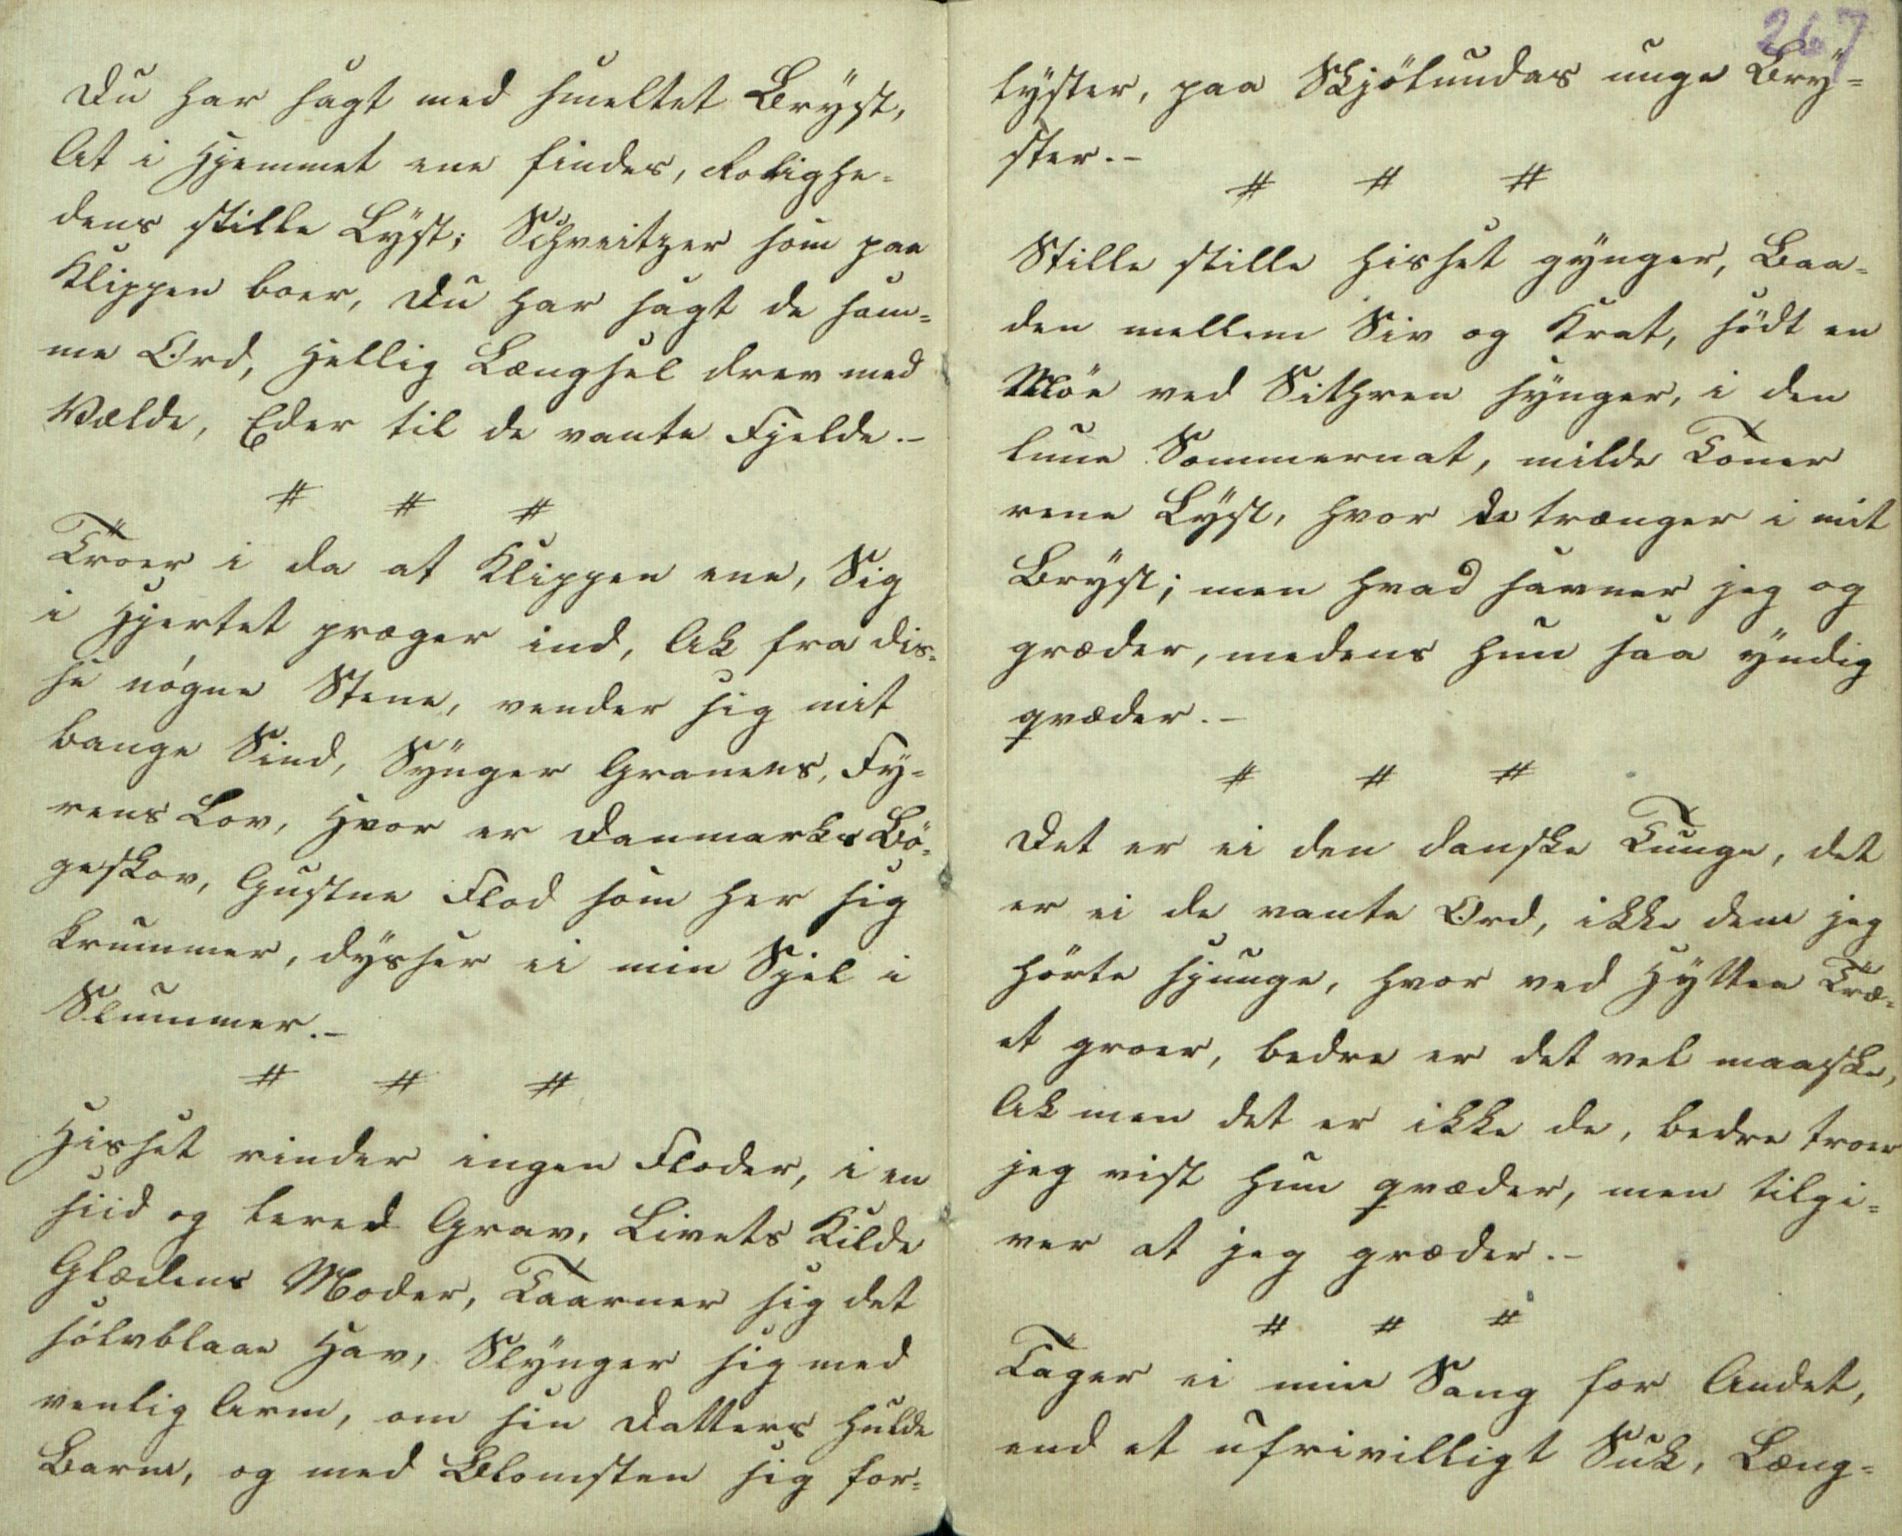 Du har sagt med smeltet Brÿst,
At i Hjemmet ene findes, Rolighe-
dens stille Lÿst; Schveitzer som paa
Klippen boer, Du har sagt de sam-
me Ord, Hellig Længsel drev med
Vælde, Eder til de vante Fjelde.-
# # #
Troer i da at Klippen ene, Sig
i Hjertet præger ind, Ak fra dis-
se nógne Stene, vender sig mit
bange Sind, Sÿnger Granens, Fÿ-
rens Lov, Hvor er Danmarks Bö-
geskov, Gustne Flod som her sig
krummer, dÿsser ei min Sjel i
Slummer.-
# # #
Hisset rinder ingen Floder, i en
siid og lered Grav, Livets Kilde
Glædens Moder, Taarner sig det
sólvblaae Hav, Slÿnger sig med
venlig Arm, om sin Datters hulde
Barm, og med Blomsten sig for-
267
lÿster, paa Skjölundas unge Brÿ-
ster.-
# # #
Stille stille hisset gÿnger, Baa-
den mellem Siv og Krat, södt en
Möe ved Sithren sÿnger, i den
lune Sommernat, milde Toner
rene Lÿst, hvor de trænger i mit
Brÿst; men hvad savner jeg og
græder, medens hun saa ÿndig
qvæder.-
# # #
Det er ei den danske Tunge, det
er ei de vante Ord, ikke dem jeg
hörte sjunge, hvor ved Hÿtten Træ-
et groer, bedre er det vel maaske,
Ak men det er ikke de, bedre troer
jeg vist hun qvæder, men tilgi-
ver at jeg græder.-
# # #
Tager ei min Sang for Andet,
end et ufrivilligt Suk, Læng-